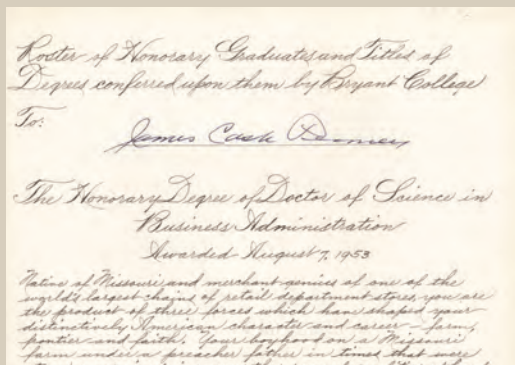 Roster of Honorary Graduates and Titles of
Degrees conferred upon them by Bryant College
To:
James Cash Penney
The Honorary Degree of Doctor of Science in
Business Administration
Awarded August 7, 1953
Native of Missouri and merchant genius of one of the
world's largest chains of retail department stores, you are
the product of three forces which have shaped your
distinctively American character and career - farm,
frontier and faith. Your boyhood on a Missouri
farm under a preacher father in times that were